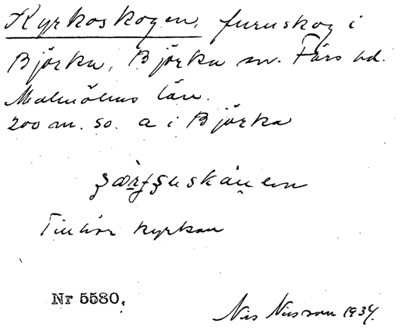 Kyrkoskogen, furuskog i
Björka, Björka sn. Färs hd.
Malmöhus län.
200 m. so. a i Björka
Tillhör kyrkan
Nr 5580.
Nils Nilsson 1934.